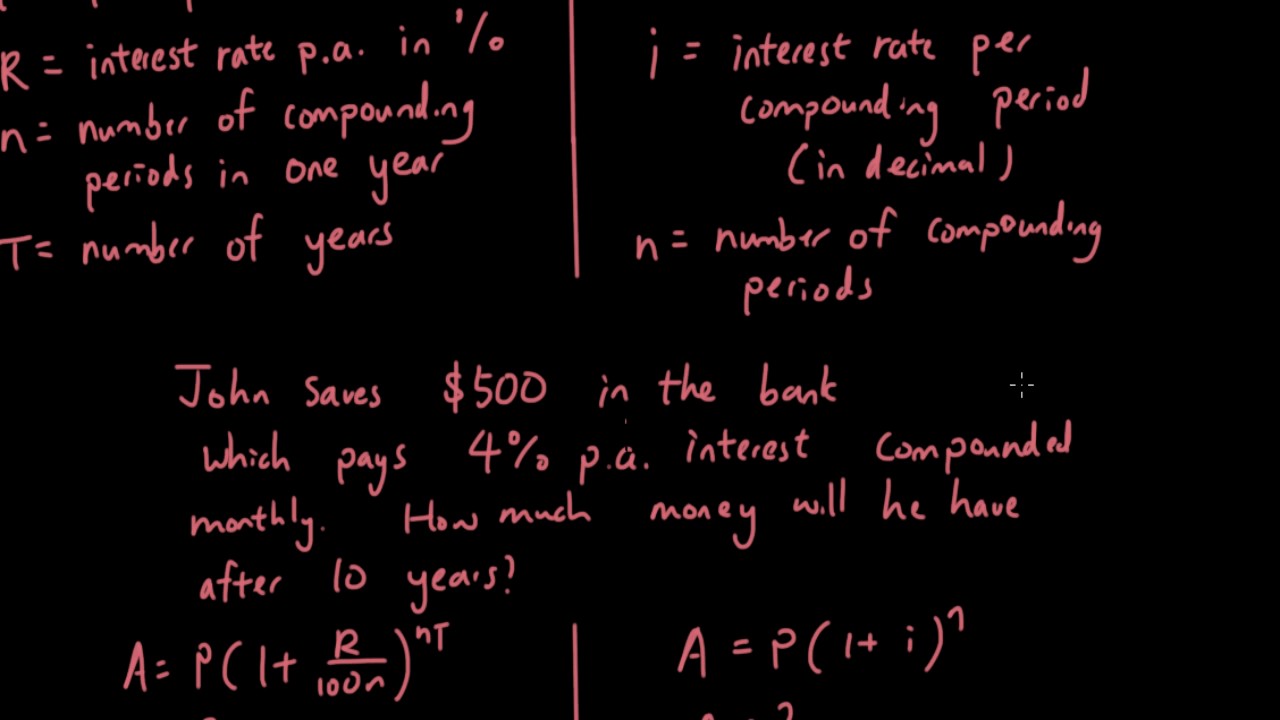 R = interest rate p.a. in %
n = number of compounding
periods in one year
T = number of years
i = interest rate per
compounding period
(in decimal)
n = number of compounding
periods
John saves $500 in the bank
which pays 4% p.a. interest compounded
monthly. How much money will he have
after 10 years?
A = P(1 + R/100n)^nT
A = P(1 + i)^n